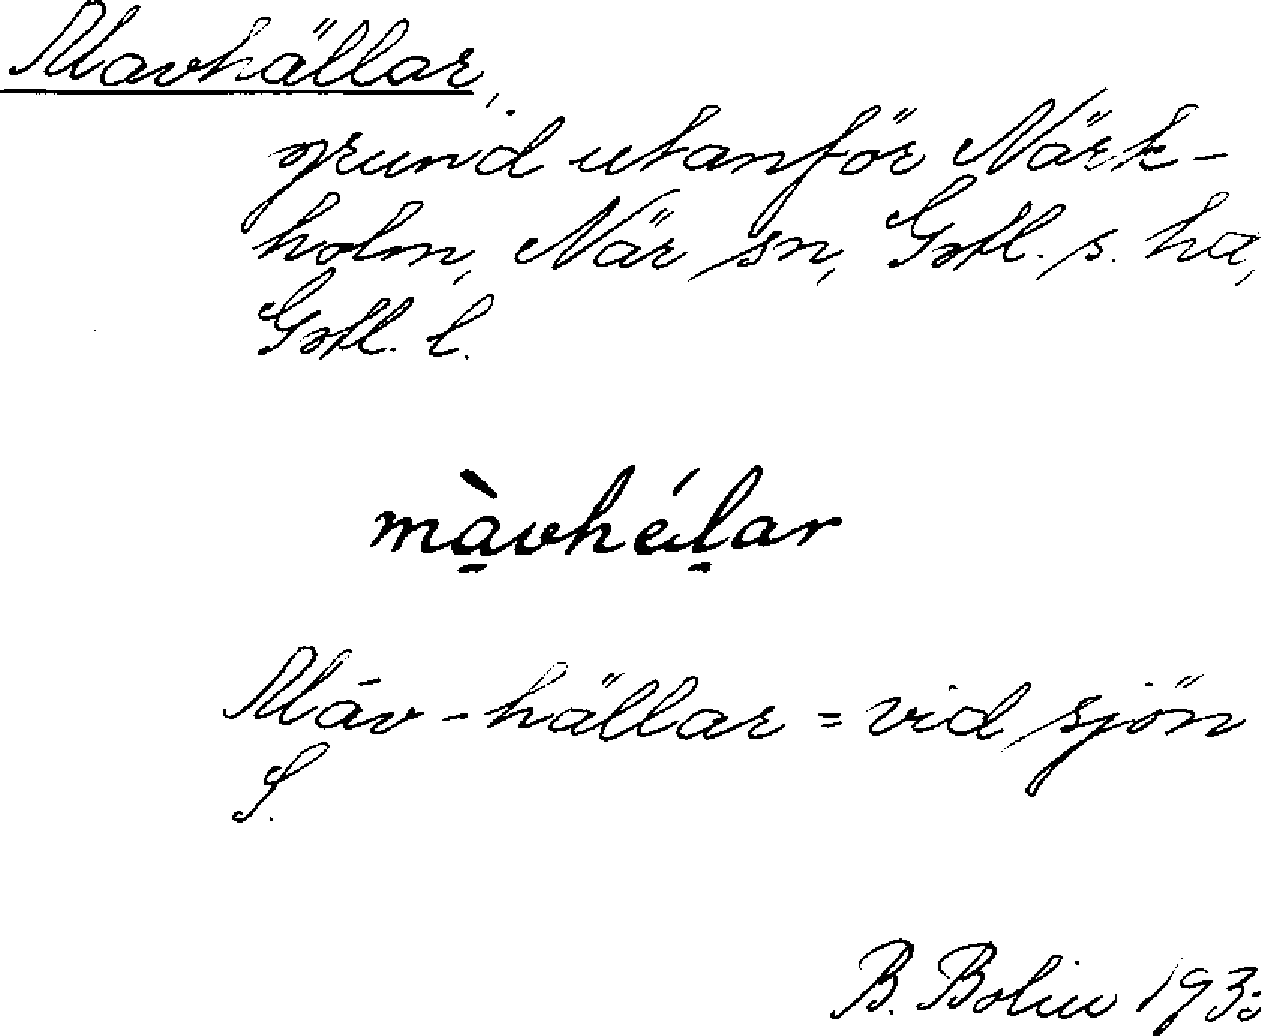 Mavhällar,
grund utanför Närk-
holm, När sn, Gotl. s. hd,
Gotl. l.
màvhélar
Máv-hällar = vid sjön
S.
B. Bolin